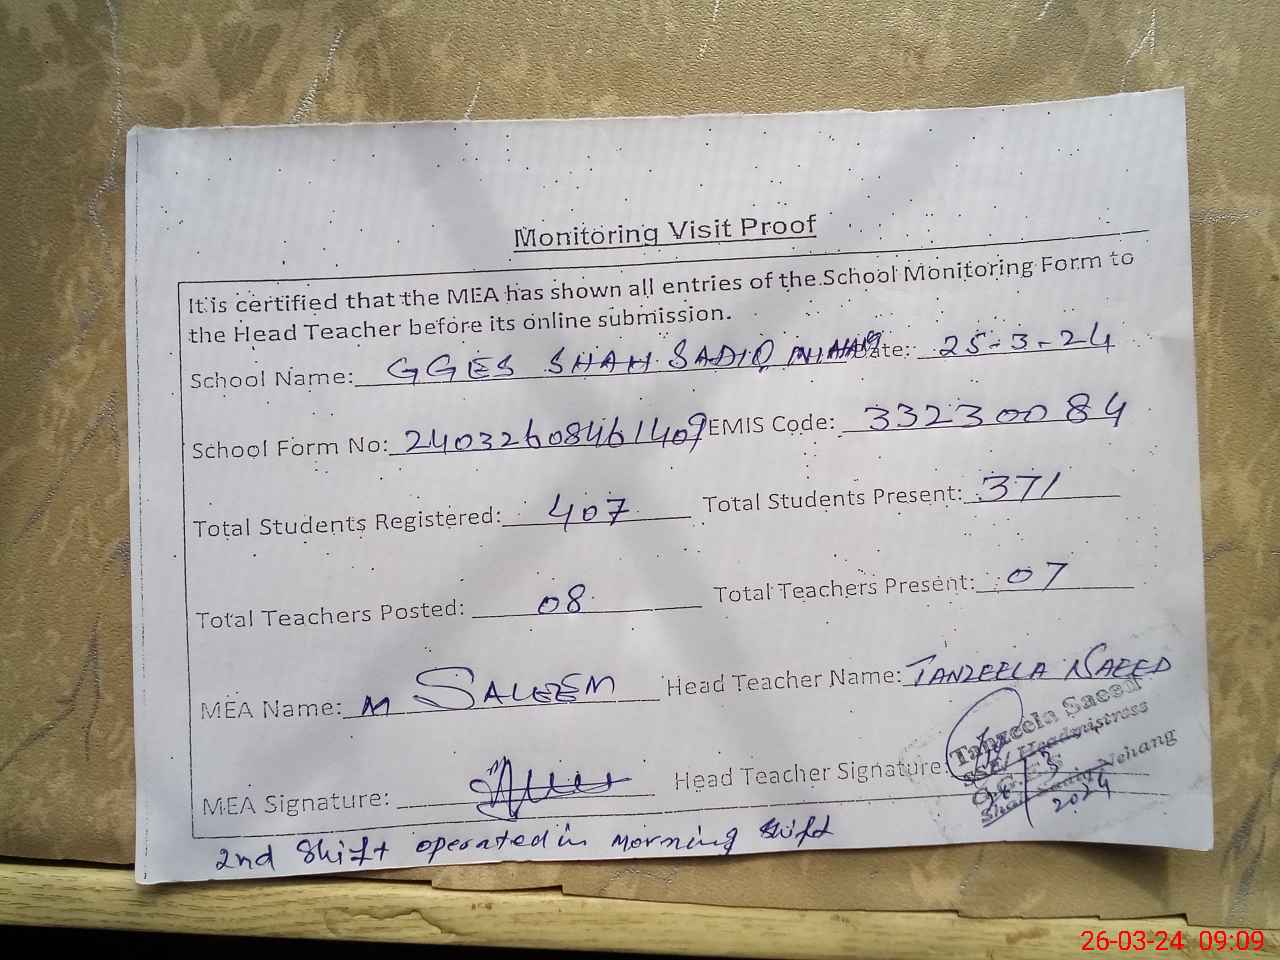 Monitoring Visit Proof
It is certified that the MEA has shown all entries of the School Monitoring Form to
the Head Teacher before its online submission.
School Name: GGES SHAH SADIQ Date: 25-3-24
School Form No: 24032608461409 EMIS Code: 33230084
Total Students Registered: 407 Total Students Present: 371
Total Teachers Posted: 08 Total Teachers Present: 07
MEA Name: M SALEEM Head Teacher Name: TANZEELA NAEED
MEA Signature: Head Teacher Signature:
Tanzeela Saeed
SSE/ Headmistress
G.G.E.S
Nehang
3
2024
2nd Shift operated in Morning Shift
26-03-24 09:09